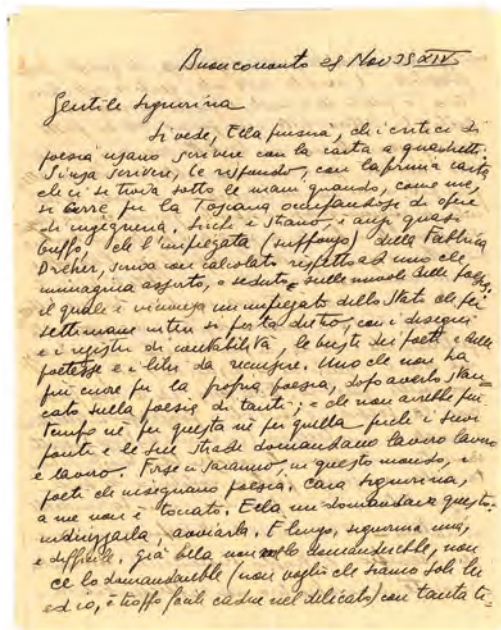 Buonconvento 28 Nov 35 XIV
Gentile Signorina
Si vede, Ella penserà, che i critici di
poesia usano scrivere con la carta a quadretti.
Senza scrivere, le rispondo, con la prima carta
che ci si trova sotto le mani quando, come me,
si corre per la Toscana occupandosi di opere
di ingegneria. Sicché è strano, e anzi quasi
buffo, che l'impiegata (suppongo) della Fabbrica
Dreher, scriva con calcolato rispetto ad uno che
immagina assorto, e seduto sulle nuvole delle
il quale è viceversa un impiegato dello Stato che per
settimane intere si porta dietro, con i disegni
e i registri di contabilità, le buste dei poeti e delle
poetesse e i libri da recensire. Uno che non ha
più cuore per la propria poesia, dopo averlo stan-
cato sulla poesia di tanti; e che non avrebbe più
tempo nè per questa nè per quella perchè i suoi
ponti e le sue strade domandano lavoro lavoro
e lavoro. Forse ci saranno, in questo mondo, i
poeti che insegnano poesia. Cara signorina,
a me non è toccato. Ella mi domandava questo:
indirizzarla, avviarla. È lungo, signorina mia,
e difficile. Già Ella non lo domanderebbe, non
ce lo domanderebbe (non voglio che siamo soli lei
ed io, è troppo facile cadere nel delicato) con tanta ti-